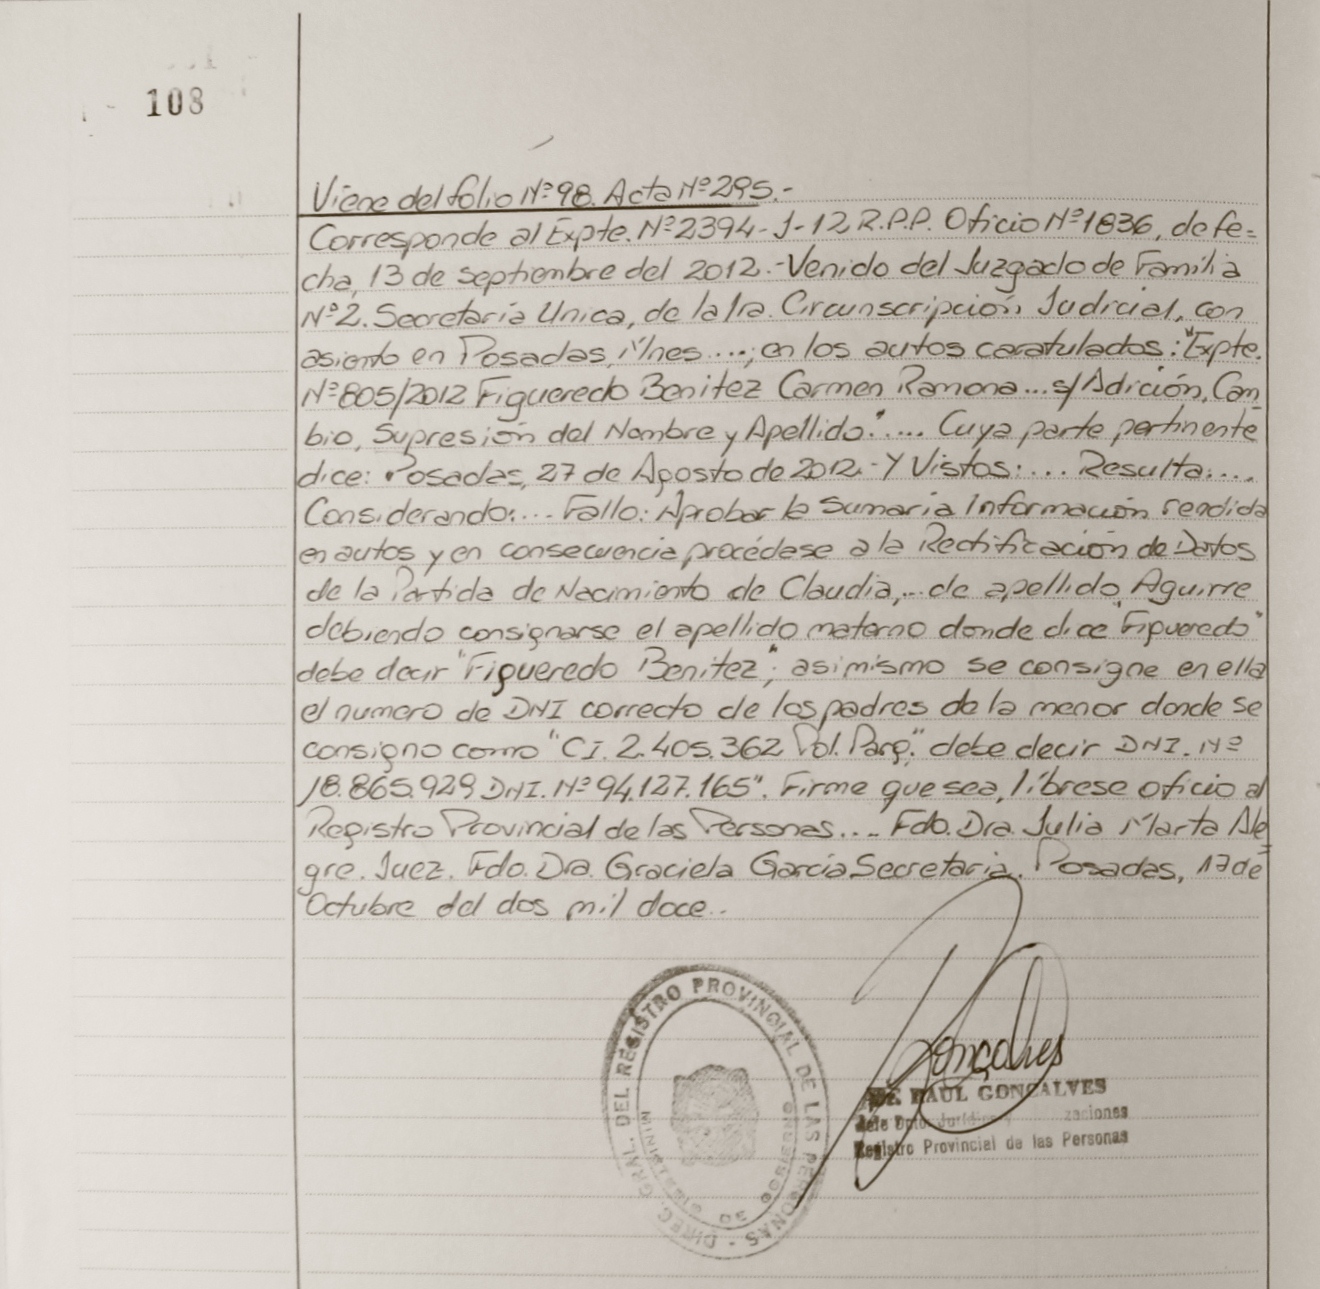 108
Viene del folio Nº 98. Acta Nº 295.-
Corresponde al Expte. Nº 2394-J-12 R.P.P. Oficio Nº 1836, de fe=
cha, 13 de septiembre del 2012.- Venido del Juzgado de Familia
Nº 2. Secretaría Unica, de la 1ra. Circunscripción Judicial, con
asiento en Posadas, Mnes....; en los autos caratulados: "Expte.
Nº 805/2012 Figueredo Benitez Carmen Ramona... s/ Adición, Cam
bio, Supresión del Nombre y Apellido".... Cuya parte pertinente
dice: Posadas, 27 de Agosto de 2012.- Y Vistos:... Resulta:....
Considerando:... Fallo: Aprobar la Sumaria Información rendida
en autos y en consecuencia procédase a la Rectificación de Datos
de la Partida de Nacimiento de Claudia,... de apellido Aguirre
debiendo consignarse el apellido materno donde dice "Figueredo"
debe decir "Figueredo Benitez"; asimismo se consigne en ella
el numero de DNI correcto de los padres de la menor donde se
consigno como "CI. 2.405.362 Pol. Parg." debe decir DNI. Nº
18.865.929 DNI. Nº 94.127.165". Firme que sea, líbrese oficio al
Registro Provincial de las Personas.... Fdo. Dra. Julia Marta Ale=
gre. Juez. Fdo. Dra. Graciela García Secretaria. Posadas, 17 de
Octubre del dos mil doce..
DIREC. GRAL. DEL REGISTRO PROVINCIAL DE LAS PERSONAS -
MINISTERIO DE GOBIERNO
Goncalves
RAUL GONCALVES
Jefe Dpto. zaciones
Registro Provincial de las Personas